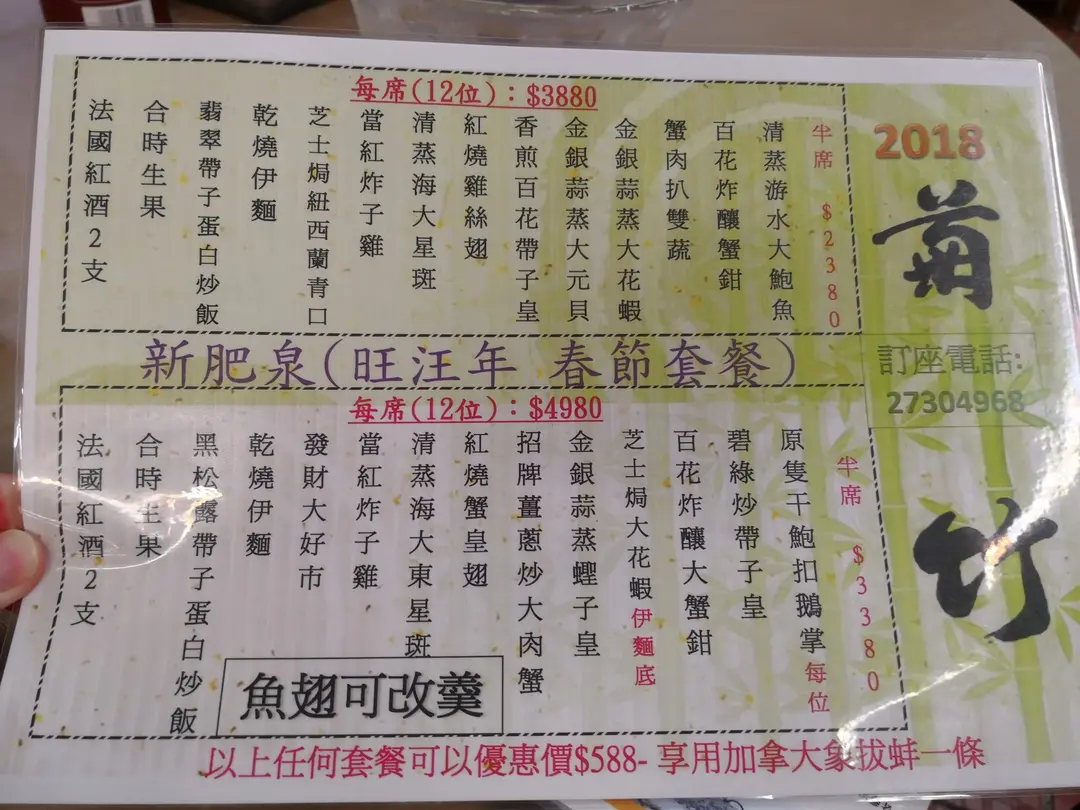 每席(12位)：$3880
半席 $2380
清蒸游水大鮑魚
百花炸釀蟹鉗
蟹肉扒雙蔬
金銀蒜蒸大花蝦
金銀蒜蒸大元貝
香煎百花帶子皇
紅燒雞絲翅
清蒸海大星斑
當紅炸子雞
芝士焗紐西蘭青口
乾燒伊麵
翡翠帶子蛋白炒飯
合時生果
法國紅酒2支
2018
菊竹
訂座電話:
27304968
新肥泉(旺汪年 春節套餐)
每席(12位)：$4980
半席 $3380
原隻干鮑扣鵝掌每位
碧綠炒帶子皇
百花炸釀大蟹鉗
芝士焗大花蝦伊麵底
金銀蒜蒸蟶子皇
招牌薑蔥炒大肉蟹
紅燒蟹皇翅
清蒸海大東星斑
當紅炸子雞
發財大好市
乾燒伊麵
黑松露帶子蛋白炒飯
合時生果
法國紅酒2支
魚翅可改羹
以上任何套餐可以優惠價$588- 享用加拿大象拔蚌一條